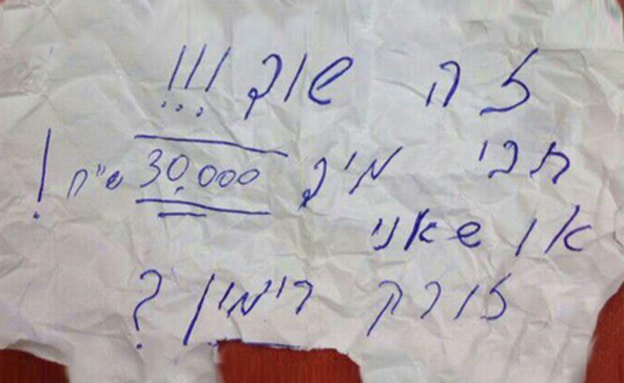 זה שוד!!!
תבי מיד 30,000 ש"ח!
או שאני
זורק רימון?